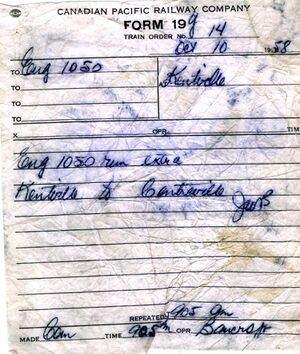 CANADIAN PACIFIC RAILWAY COMPANY
FORM 19 y
TRAIN ORDER No. 14
Oct 10 1958
TO Eng 1050 Kentville
TO
TO
TO
X OPR. M
Eng 1050 run extra
Kentville to Centreville
JWB
REPEATED 905 am
MADE Com TIME 905 M OPR Bancroft